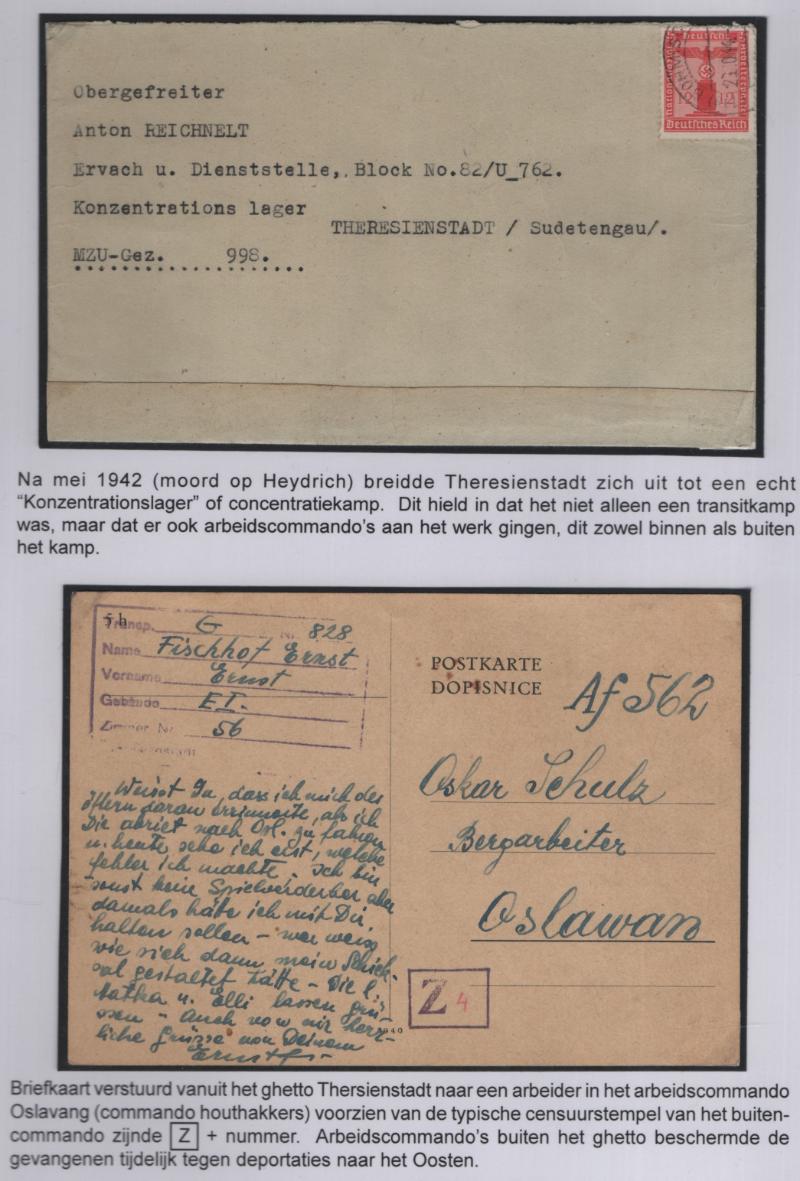 Obergefreiter
Anton REICHNELT
Ervach u. Dienststelle, Block No.82/U_762.
Konzentrations lager
THERESIENSTADT / Sudetengau/.
MZU-Gez. 998.
Deutsche
12 12
Deutsches Reich
Na mei 1942 (moord op Heydrich) breidde Theresienstadt zich uit tot een echt
“Konzentrationslager” of concentratiekamp. Dit hield in dat het niet alleen een transitkamp
was, maar dat er ook arbeidscommando’s aan het werk gingen, dit zowel binnen als buiten
het kamp.
5 h
Transp. G Nr. 828
Name Fischhof Ernst
Vorname Ernst
Gebäude E I.
Zimmer Nr. 56
POSTKARTE
DOPISNICE
Af 562
Oskar Schulz
Bergarbeiter
Oslawan
Weisst Du, dass ich mich des
öftern daran erinnerte, als ich
Dir abriet nach Osl. zu fahren
u. heute sehe ich erst, welche
fehler ich machte. Ich bin
sonst kein Spielverderber aber
damals hätte ich mit Dir
halten sollen – wer weiss
wie sich dann mein Schick-
sal gestaltet hätte – Die l.
u. Elli lassen grü-
ssen – Auch von mir herz-
liche Grüsse von Deinem
Ernst
Z 4
Briefkaart verstuurd vanuit het ghetto Thersienstadt naar een arbeider in het arbeidscommando
Oslavang (commando houthakkers) voorzien van de typische censuurstempel van het buiten-
commando zijnde Z + nummer. Arbeidscommando’s buiten het ghetto beschermde de
gevangenen tijdelijk tegen deportaties naar het Oosten.